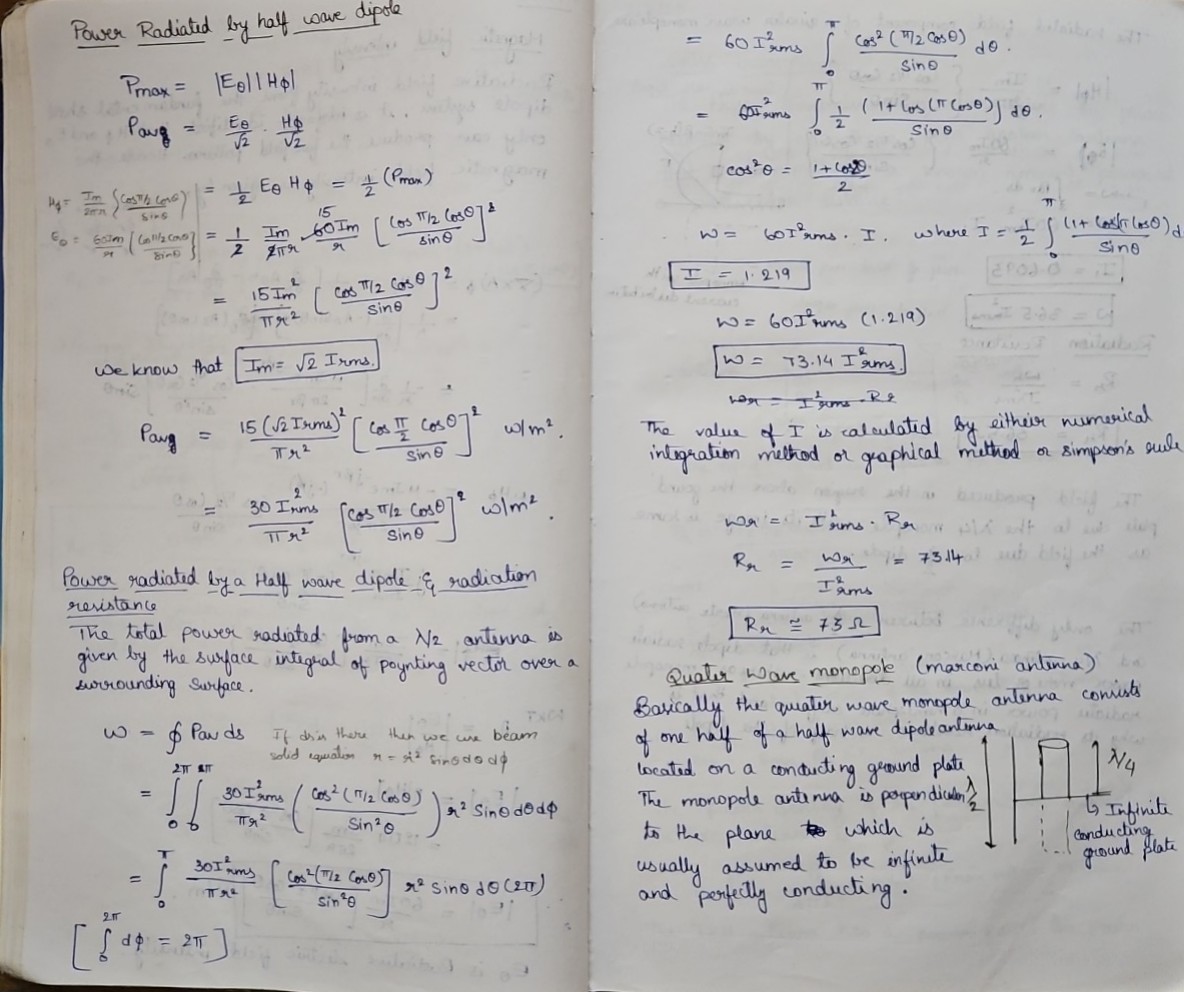 Power Radiated by half wave dipole
Pmax = |Eθ| |Hϕ|
Pavg = Eθ/√2 . Hϕ/√2
= 1/2 Eθ Hϕ = 1/2 (Pmax)
Hϕ = Im/2πr {cos π/2 cosθ / sinθ}
Eθ = 60Im/r {cos π/2 cosθ / sinθ}
= 1/2 Im/2πr 60Im/r [cos π/2 cosθ / sinθ]²
15
= 15Im²/πr² [cos π/2 cosθ / sinθ]²
We know that Im = √2 Irms.
Pavg = 15(√2 Irms)²/πr² [cos π/2 cosθ / sinθ]² w/m².
= 30 I²rms/πr² [cos π/2 cosθ / sinθ]² w/m².
Power radiated by a Half wave dipole & radiation
resistance
The total power radiated from a λ/2 antenna is
given by the surface integral of poynting vector over a
surrounding surface.
W = ∮ Pav ds If ds is there then we use beam
solid equation r = r² sinθ dθ dϕ
= ∫₀^2π ∫₀^π 30 I²rms/πr² (cos² (π/2 cosθ) / sin²θ) r² sinθ dθ dϕ
= ∫₀^π 30 I²rms/πr² [cos² (π/2 cosθ) / sin²θ] r² sinθ dθ (2π)
[∫₀^2π dϕ = 2π]
= 60 I²rms ∫₀^π cos² (π/2 cosθ) / sinθ dθ.
= 60I²rms ∫₀^π 1/2 (1 + cos (π cosθ)) / sinθ dθ.
cos²θ = 1 + cos2θ / 2
W = 60I²rms . I. where I = 1/2 ∫₀^π (1 + cos(π cosθ) / sinθ d
I = 1.219
W = 60I²rms (1.219)
W = 73.14 I²rms.
Wr = I²rms . Rr
The value of I is calculated by eitheir numerical
integration method or graphical method or simpson's rule
Wr = I²rms . Rr
Rr = Wr/I²rms = 73.14
Rr ≅ 73 Ω
Quater Wave monopole (marconi antenna)
Basically the quater wave monopole antenna consists
of one half of a half wave dipole antenna
located on a conducting ground plate
The monopole antenna is perpendicular
to the plane which is
usually assumed to be infinite
and perfectly conducting.
λ/2
λ/4
↳ Infinite
conducting
ground plate